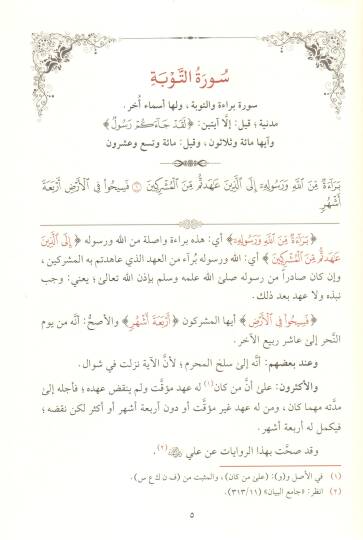 سُورَةُ التَّوْبَةِ
سورة براءة والتوبة، ولها أسماء أُخر.
مدنية؛ قيل: إلَّا آيتين: ﴿لَقَدْ جَآءَكُمْ رَسُولٌ﴾
وآيها مائة وثلاثون، وقيل: مائة وتسع وعشرون
بَرَآءَةٌ مِّنَ ٱللَّهِ وَرَسُولِهِۦٓ إِلَى ٱلَّذِينَ عَٰهَدتُّم مِّنَ ٱلْمُشْرِكِينَ ۝١ فَسِيحُوا۟ فِى ٱلْأَرْضِ أَرْبَعَةَ
أَشْهُرٍ
﴿بَرَآءَةٌ مِّنَ ٱللَّهِ وَرَسُولِهِۦٓ﴾ أي: هذه براءة واصلة من الله ورسوله ﴿إِلَى ٱلَّذِينَ
عَٰهَدتُّم مِّنَ ٱلْمُشْرِكِينَ﴾ أي: الله ورسوله بُرآء من العهد الذي عاهدتم به المشركين،
وإن كان صادراً من رسوله صلى الله عليه وسلم بإذن الله تعالىٰ؛ يعني: وجب
نبذه ولا عهد بعد ذلك.
﴿فَسِيحُوا۟ فِى ٱلْأَرْضِ﴾ أيها المشركون ﴿أَرْبَعَةَ أَشْهُرٍ﴾ والأصحُّ: أنَّه من يوم
النَّحر إلىٰ عاشر ربيع الآخر.
وعند بعضهم: أنَّه إلىٰ سلخ المحرم؛ لأنَّ الآية نزلت في شوال.
والأكثرون: علىٰ أنَّ من كان(١) له عهد مؤقَّت ولم ينقض عهده؛ فأجله إلىٰ
مدَّته مهما كان، ومن له عهد غير مؤقَّت أو دون أربعة أشهر أو أكثر لكن نقضه؛
فيكمل له أربعة أشهر.
وقد صحَّت بهذا الروايات عن علي رضي الله عنه(٢).
(١) في الأصل و(و): (علىٰ من كان)، والمثبت من (ف ن ك ع س).
(٢) انظر: «جامع البيان» (٣١٣/١١)
٥